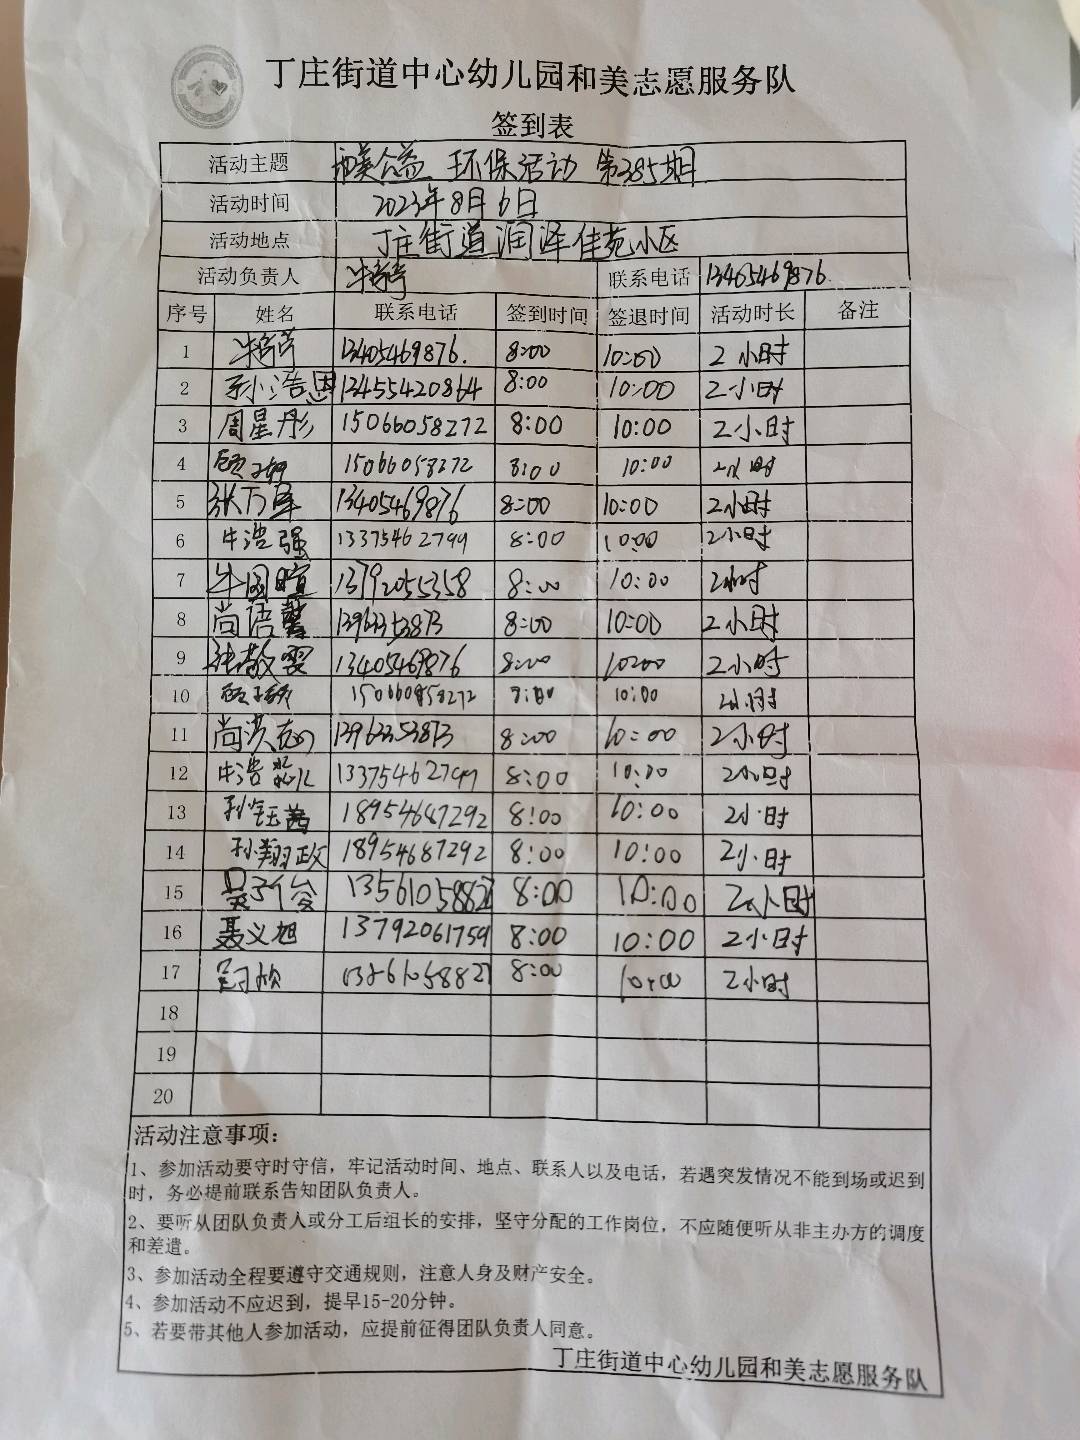 丁庄街道中心幼儿园和美志愿服务队
签到表
活动主题 和美公益 环保活动 第385期
活动时间 2023年8月6日
活动地点 丁庄街道润泽佳苑小区
活动负责人 联系电话 13405469876.
序号 姓名 联系电话 签到时间 签退时间 活动时长 备注
1 13405469876. 8:00 10:00 2小时
2 孙浩恩 13455420864 8:00 10:00 2小时
3 周星彤 15066058272 8:00 10:00 2小时
4 15066058272 8:00 10:00 2小时
5 张万军 13405469876 8:00 10:00 2小时
6 牛浩强 13375462799 8:00 10:00 2小时
7 牛国暄 13792055358 8:00 10:00 2小时
8 尚语馨 13963353873 8:00 10:00 2小时
9 张敬雯 13405469876 8:00 10:00 2小时
10 15066058272 8:00 10:00 2小时
11 尚洪 13963353873 8:00 10:00 2小时
12 牛浩 13375462799 8:00 10:00 2小时
13 孙钰茜 18954687292 8:00 10:00 2小时
14 孙翔政 18954687292 8:00 10:00 2小时
15 吴子俊 13561058827 8:00 10:00 2小时
16 聂义旭 13792061759 8:00 10:00 2小时
17 13561058827 8:00 10:00 2小时
18
19
20
活动注意事项：
1、参加活动要守时守信，牢记活动时间、地点、联系人以及电话，若遇突发情况不能到场或迟到
时，务必提前联系告知团队负责人。
2、要听从团队负责人或分工后组长的安排，坚守分配的工作岗位，不应随便听从非主办方的调度
和差遣。
3、参加活动全程要遵守交通规则，注意人身及财产安全。
4、参加活动不应迟到，提早15-20分钟。
5、若要带其他人参加活动，应提前征得团队负责人同意。
丁庄街道中心幼儿园和美志愿服务队